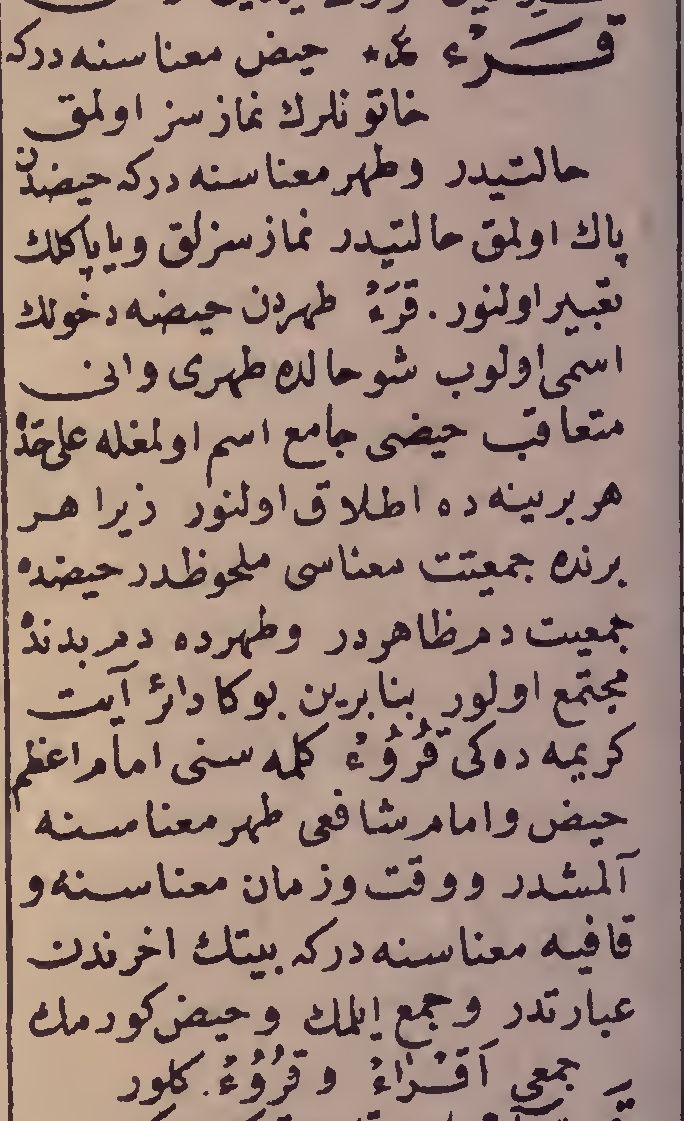 قَرْء ع٭ حيض معناسنه دركه
خاتونلرك نماز سز اولمق
حالتيدر وطهر معناسنه دركه حيضدن
پاك اولمق حالتيدر نماز سزلق ويا پاكلك
تعبير اولنور . قَرْءُ طهردن حيضه دخولك
اسمى اولوب شو حالده طهرى وانى
متعاقب حيضى جامع اسم اولمغله على حدة
هر برينه ده اطلاق اولنور زيرا هر
برنده جمعيت معناسى ملحوظدر حيضده
جمعيت دم ظاهردر وطهرده دم بدنده
مجتمع اولور بنابرين بوكا دائر آيت
كريمه ده كى قُرُوُءْ كلمه سنى امام اعظم
حيض وامام شافعى طهر معناسنه
آلمشدر ووقت وزمان معناسنه و
قافيه معناسنه دركه بيتك اخرندن
عبارتدر وجمع ايلمك وحيض كورمك
جمعى اَقْرَاءْ و قُرُوُءْ . كلور